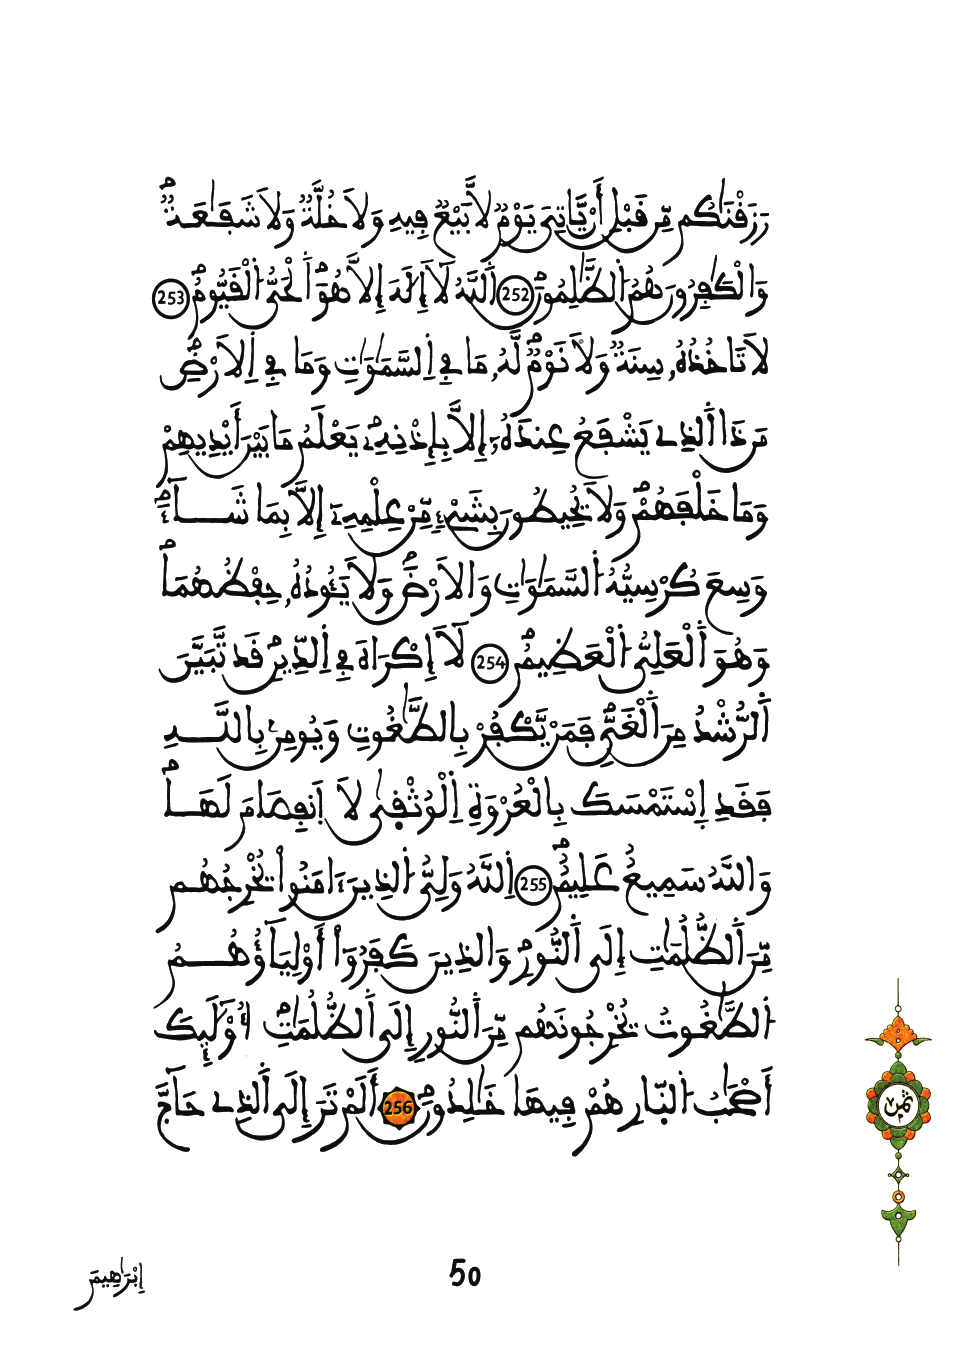 رَزَقْنَٰكُم مِّن قَبْلِ أَنْ يَّاتِىَ يَوْمٌ لَّا بَيْعٌ فِيهِ وَلَا خُلَّةٌ وَلَا شَفَٰعَةٌ
وَالْكَٰفِرُونَ هُمُ الظَّٰلِمُونَ 252 اَللَّهُ لَآ إِلَٰهَ إِلَّا هُوَ اَلْحَىُّ الْقَيُّومُ 253
لَا تَاخُذُهُۥ سِنَةٌ وَلَا نَوْمٌ لَّهُۥ مَا فِى اِلسَّمَٰوَٰتِ وَمَا فِى اِلَارْضِ
مَن ذَا اَلذِى يَشْفَعُ عِندَهُۥٓ إِلَّا بِإِذْنِهِۦ يَعْلَمُ مَا بَيْنَ أَيْدِيهِمْ
وَمَا خَلْفَهُمْ وَلَا يُحِيطُونَ بِشَىْءٍ مِّنْ عِلْمِهِۦٓ إِلَّا بِمَا شَآءَ
وَسِعَ كُرْسِيُّهُ السَّمَٰوَٰتِ وَالَارْضَ وَلَا يَـُٔودُهُۥ حِفْظُهُمَا
وَهُوَ اَلْعَلِىُّ الْعَظِيمُ 254 لَآ إِكْرَاهَ فِى اِلدِّينِ قَد تَّبَيَّنَ
اَلرُّشْدُ مِنَ اَلْغَىِّ فَمَنْ يَّكْفُرْ بِالطَّٰغُوتِ وَيُومِنۢ بِاللَّهِ
فَقَدِ اِسْتَمْسَكَ بِالْعُرْوَةِ اِلْوُثْقَىٰ لَا اَنفِصَامَ لَهَا
وَاللَّهُ سَمِيعٌ عَلِيمٌ 255 اِللَّهُ وَلِىُّ الذِينَ ءَامَنُوا يُخْرِجُهُم
مِّنَ اَلظُّلُمَٰتِ إِلَى اَلنُّورِ وَالذِينَ كَفَرُوٓا أَوْلِيَآؤُهُمُ
الطَّٰغُوتُ يُخْرِجُونَهُم مِّنَ اَلنُّورِ إِلَى اَلظُّلُمَٰتِ أُوْلَٰٓئِكَ
أَصْحَٰبُ النّ۪ارِ هُمْ فِيهَا خَٰلِدُونَ 256 أَلَمْ تَرَ إِلَى اَلذِى حَآجَّ
ثمن
إِبْرَٰهِيمَ
50